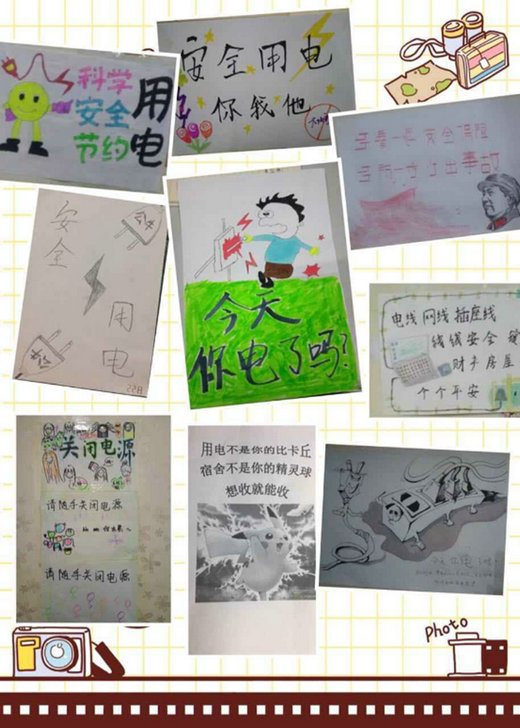 科学
安全
节约
用电
安全用电
你我他
多看一眼 安全保险
多防一方 少出事故
安全
用电
228
今天
你电了吗?
电线 网线 插座线
线线安全
财产房屋
个个平安
关闭电源
请随手关闭电源
请随手关闭电源
用电不是你的比卡丘
宿舍不是你的精灵球
想收就能收
今天你电了吗?
Photo